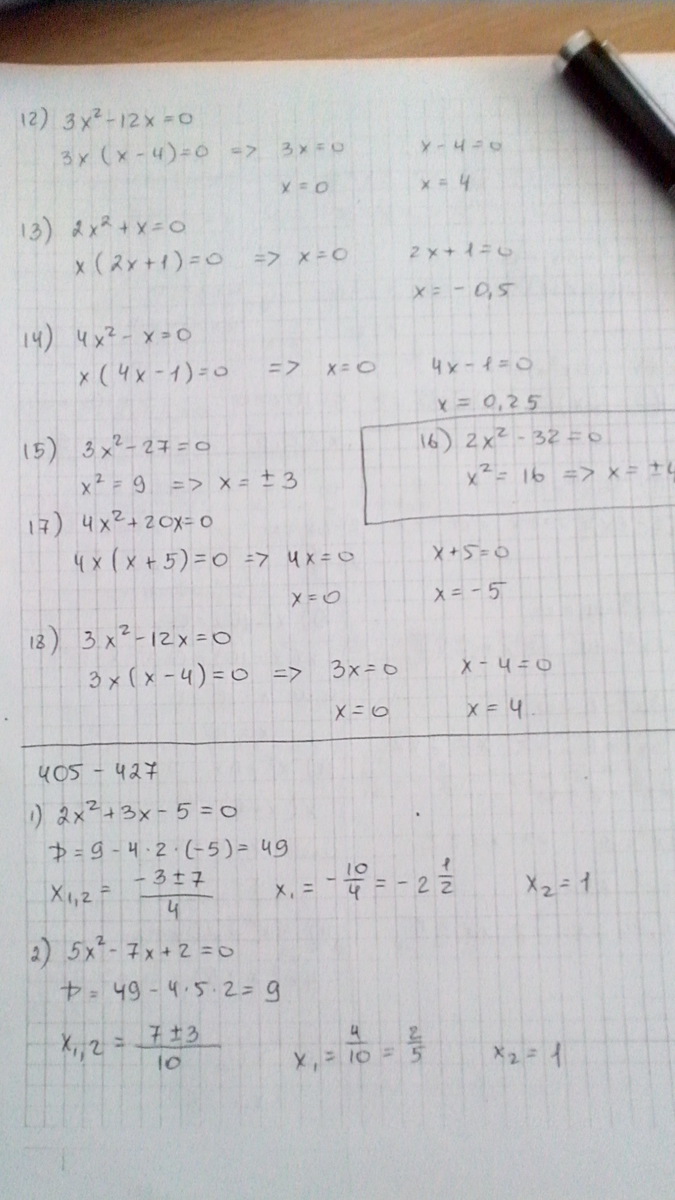 12) 3x² - 12x = 0
3x (x - 4) = 0 => 3x = 0 x - 4 = 0
x = 0 x = 4
13) 2x² + x = 0
x (2x + 1) = 0 => x = 0 2x + 1 = 0
x = - 0,5
14) 4x² - x = 0
x (4x - 1) = 0 => x = 0 4x - 1 = 0
x = 0,25
15) 3x² - 27 = 0
x² = 9 => x = ± 3
16) 2x² - 32 = 0
x² = 16 => x = ±4
17) 4x² + 20x = 0
4x (x + 5) = 0 => 4x = 0 x + 5 = 0
x = 0 x = - 5
18) 3x² - 12x = 0
3x (x - 4) = 0 => 3x = 0 x - 4 = 0
x = 0 x = 4
405 - 427
1) 2x² + 3x - 5 = 0
D = 9 - 4 · 2 · (-5) = 49
x₁,₂ = (-3 ± 7)/4 x₁ = - 10/4 = - 2 1/2 x₂ = 1
2) 5x² - 7x + 2 = 0
D = 49 - 4 · 5 · 2 = 9
x₁,₂ = (7 ± 3)/10 x₁ = 4/10 = 2/5 x₂ = 1